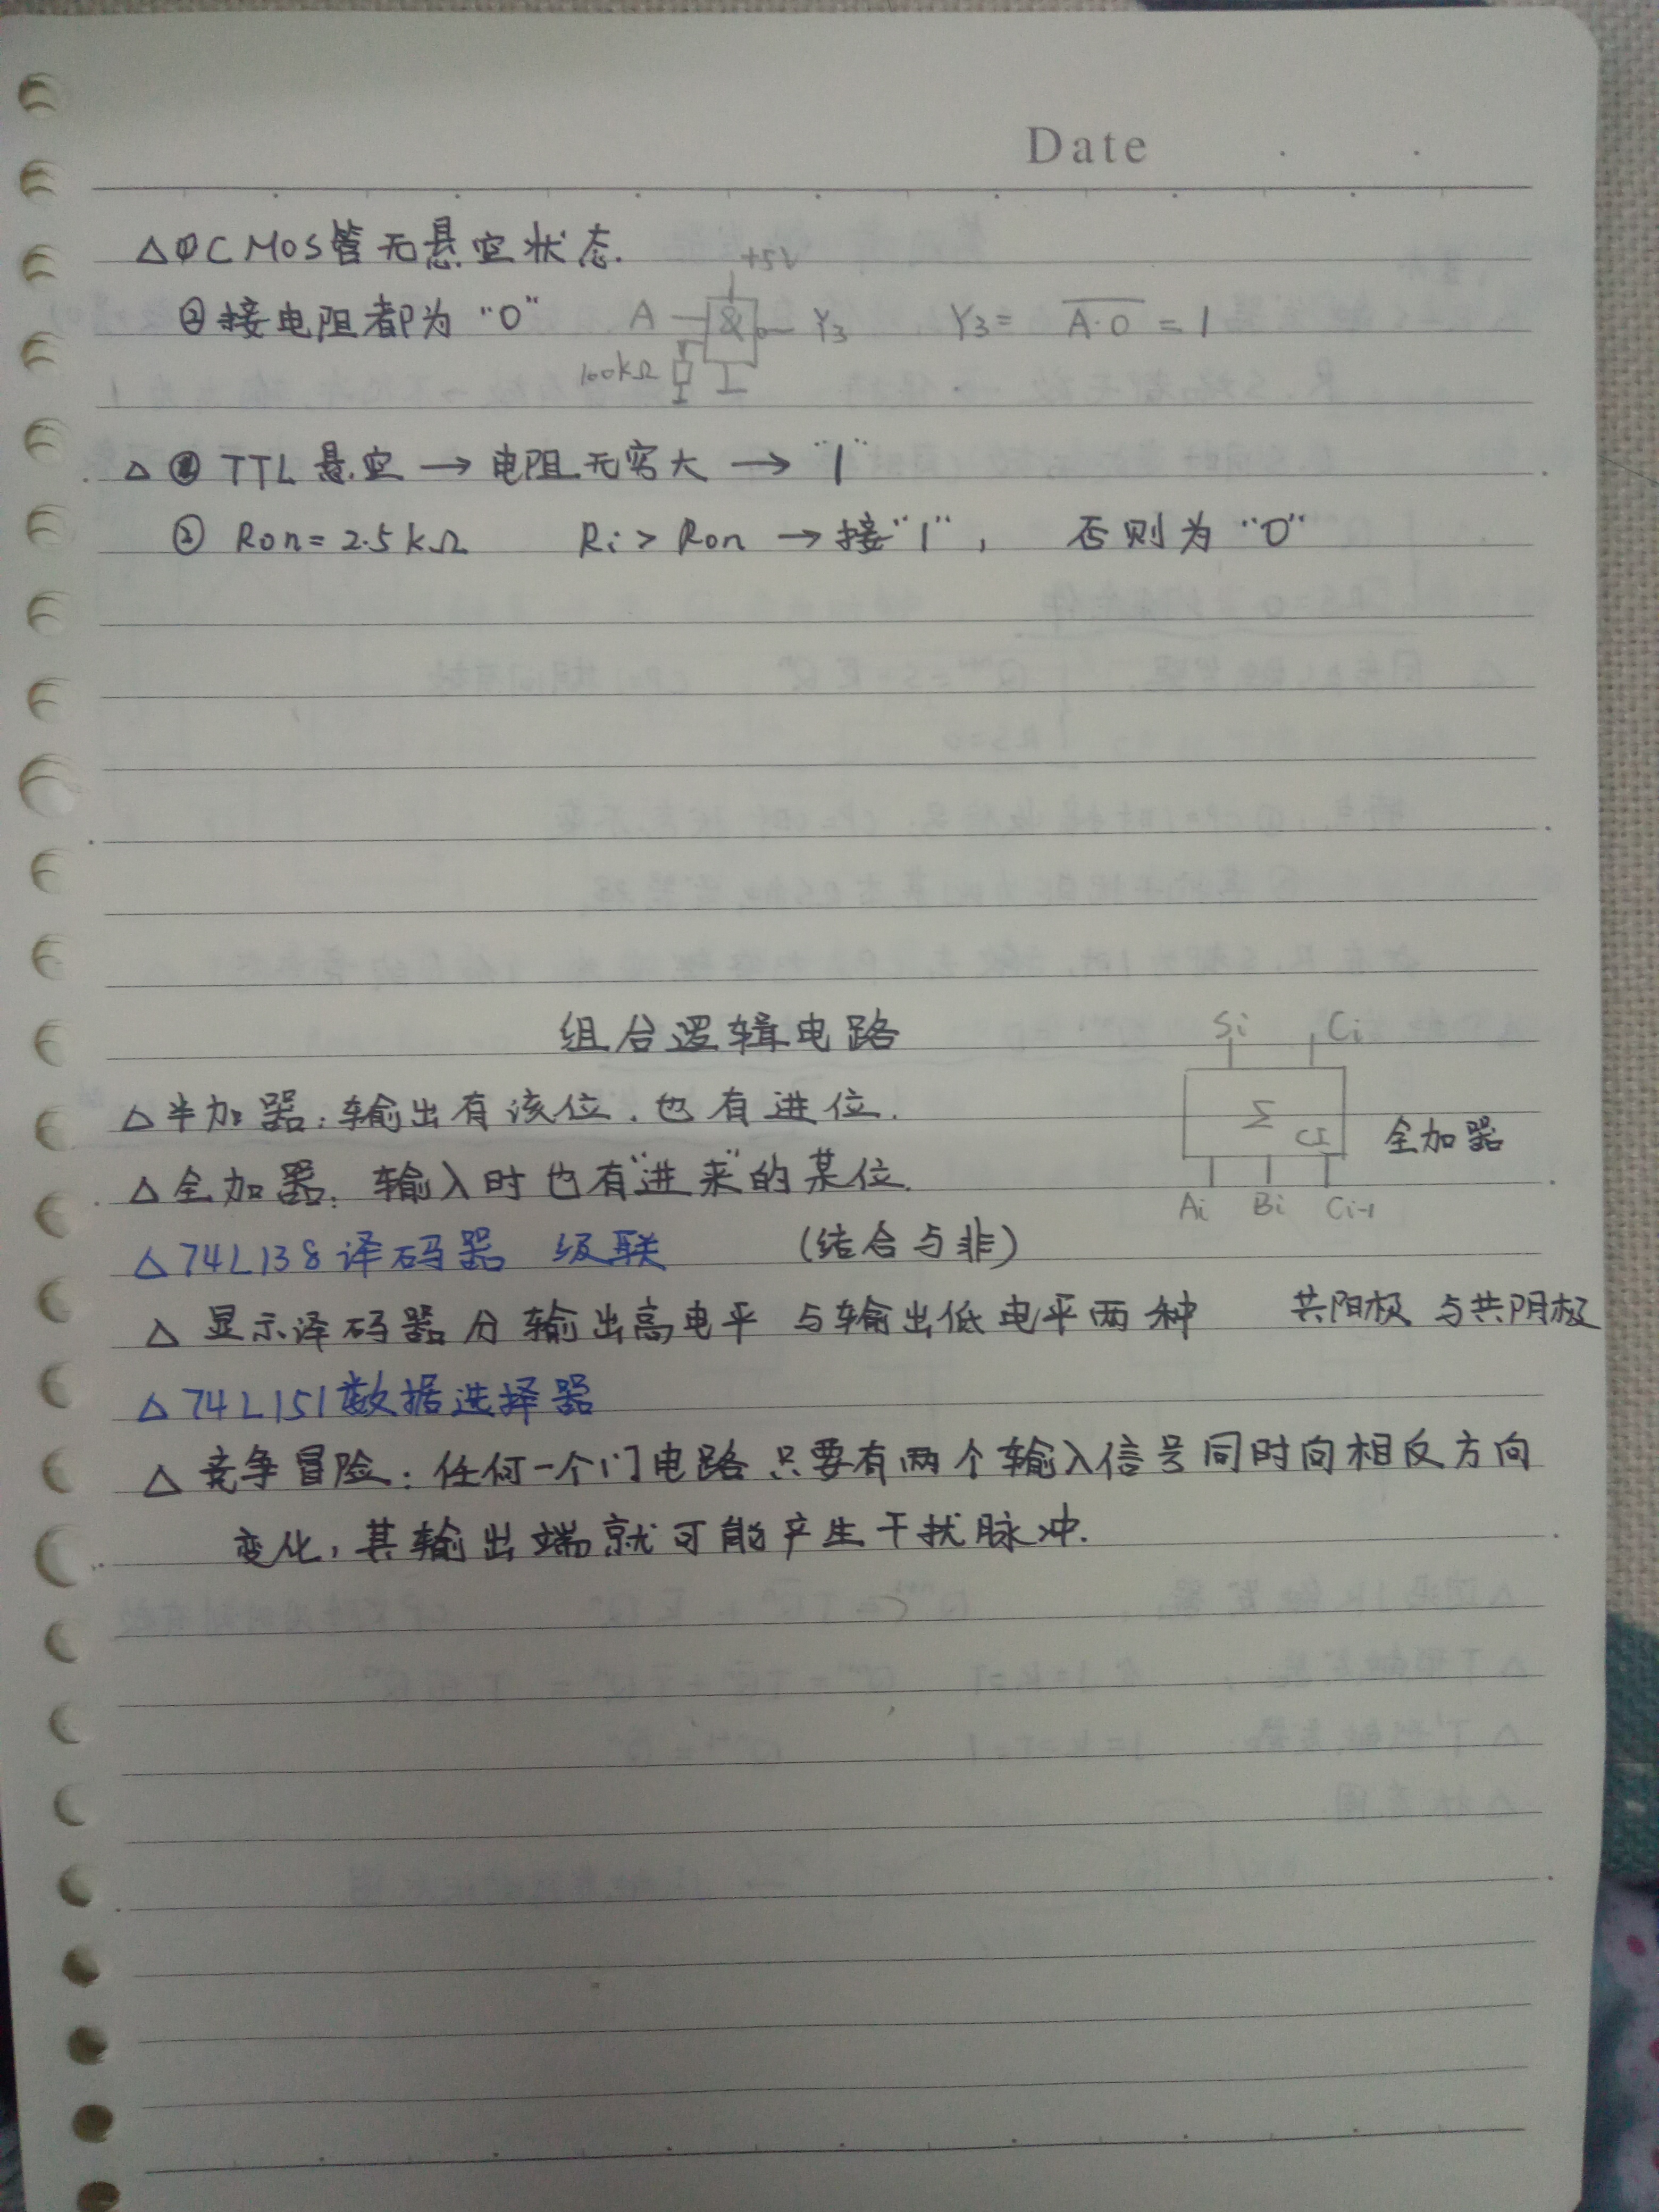 Date
△①CMOS管无悬空状态.
+5V
②接电阻都为“0” A & Y3 Y3= \overline{A·0} = 1
100kΩ
△ ① TTL 悬空 → 电阻无穷大 → “1”
② Ron=2.5kΩ Ri > Ron → 接“1”, 否则为“0”
组合逻辑电路
Si Ci
△半加器:输出有该位.也有进位.
Σ CI 全加器
△全加器: 输入时也有“进来”的某位.
Ai Bi Ci-1
△74L138译码器 级联 (结合与非)
△ 显示译码器分输出高电平与输出低电平两种 共阳极与共阴极
△74L151数据选择器
△ 竞争冒险:任何一个门电路只要有两个输入信号同时向相反方向
变化,其输出端就可能产生干扰脉冲.